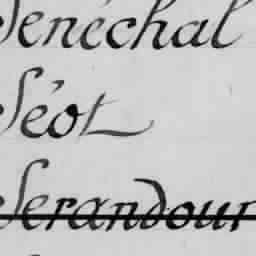 Sénéchal
Séot
Serandour